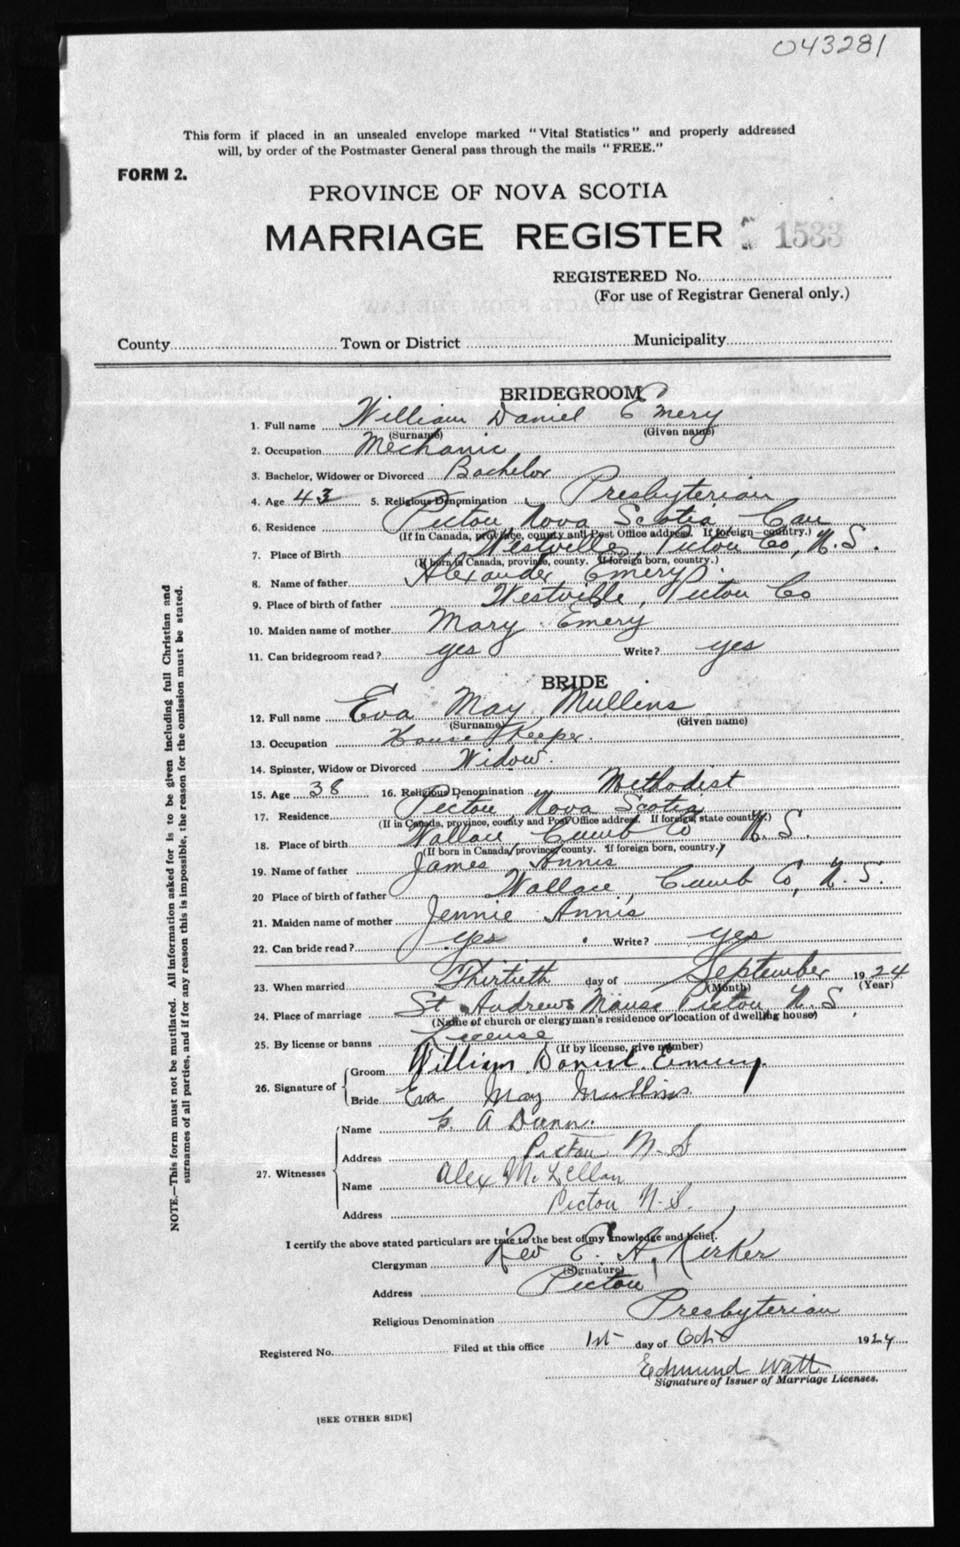 043281
This form if placed in an unsealed envelope marked "Vital Statistics" and properly addressed
will, by order of the Postmaster General pass through the mails "FREE."
FORM 2.
PROVINCE OF NOVA SCOTIA
MARRIAGE REGISTER 1533
REGISTERED No.
(For use of Registrar General only.)
County Town or District Municipality
BRIDEGROOM
1. Full name William Daniel Emery
(Surname) (Given name)
2. Occupation Mechanic
3. Bachelor, Widower or Divorced Bachelor
4. Age 43 5. Religious Denomination Presbyterian
6. Residence Pictou Nova Scotia Can
(If in Canada, province, county and Post Office address. If foreign—country.)
7. Place of Birth Westville, Pictou Co, N.S.
(If born in Canada, province, county. If foreign born, country.)
8. Name of father Alexander Emery
9. Place of birth of father Westville, Pictou Co
10. Maiden name of mother Mary Emery
11. Can bridegroom read? yes Write? yes
BRIDE
12. Full name Eva May Mullins
(Surname) (Given name)
13. Occupation House Keeper.
14. Spinster, Widow or Divorced Widow.
15. Age 38 16. Religious Denomination Methodist
17. Residence Pictou Nova Scotia
(If in Canada, province, county and Post Office address. If foreign state country.)
18. Place of birth Wallace Cumb Co N.S.
(If born in Canada, province, county. If foreign born, country.)
19. Name of father James Annis
20 Place of birth of father Wallace, Cumb Co, N.S.
21. Maiden name of mother Jennie Annis
22. Can bride read? yes Write? yes
23. When married Thirtieth day of September 1924
(Month) (Year)
24. Place of marriage St Andrews Manse Pictou N.S.
(Name of church or clergyman's residence or location of dwelling house)
25. By license or banns License
(If by license, give number)
26. Signature of Groom William Daniel Emery
Bride Eva May Mullins
27. Witnesses
Name A Dunn.
Address Pictou N.S
Name Alex McLellan
Address Pictou N.S.
I certify the above stated particulars are true to the best of my knowledge and belief.
Clergyman Rev A. Kerker
(Signature)
Address Pictou
Religious Denomination Presbyterian
Registered No. Filed at this office 1st day of Oct 1924
Edmund Watt
Signature of Issuer of Marriage Licenses.
[SEE OTHER SIDE]
NOTE.—This form must not be mutilated. All information asked for is to be given including full Christian and
surnames of all parties, and if for any reason this is impossible, the reason for the omission must be stated.